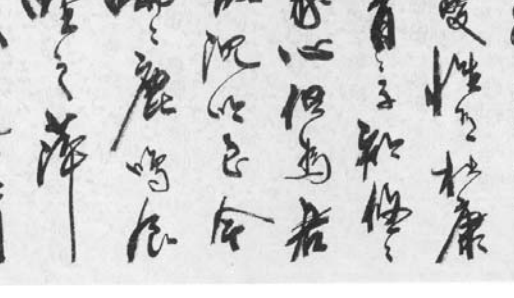 憂惟有杜康
青々子衿悠々
我心但為君
故沉吟至今
呦々鹿鳴食
野之苹